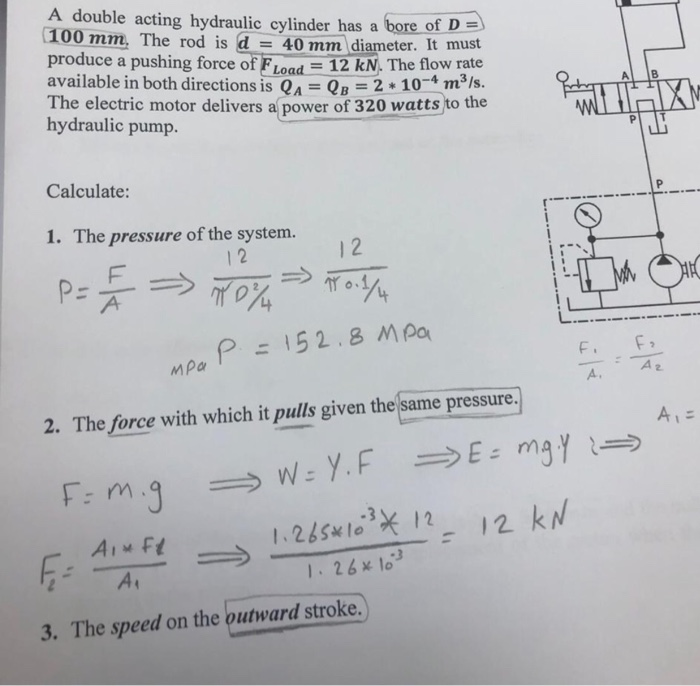 A double acting hydraulic cylinder has a bore of D =
100 mm. The rod is d = 40 mm diameter. It must
produce a pushing force of F_Load = 12 kN. The flow rate
available in both directions is Q_A = Q_B = 2 * 10⁻⁴ m³/s.
The electric motor delivers a power of 320 watts to the
hydraulic pump.
A B
P T
P
Calculate:
1. The pressure of the system.
P = F/A ⇒ 12/πD²/4 ⇒ 12/π0.1/4
MPa P = 152.8 MPa
F₁/A₁ = F₂/A₂
2. The force with which it pulls given the same pressure.
A₁ =
F = m.g ⇒ W = Y.F ⇒ E = mg.Y ⇒
1.265*10⁻³ * 12 / 1.26*10⁻³ = 12 kN
3. The speed on the outward stroke.